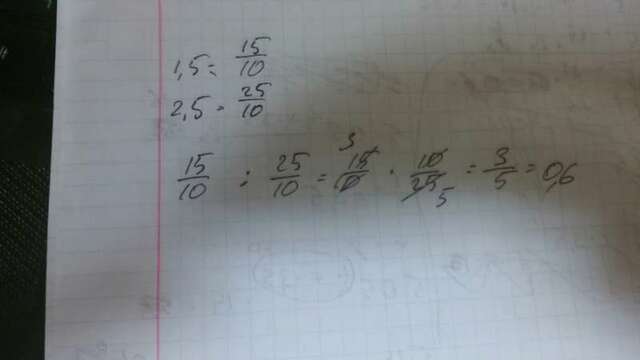 1,5 = 15/10
2,5 = 25/10
15/10 : 25/10 = 15/10 3 · 10/25 5 = 3/5 = 0,6